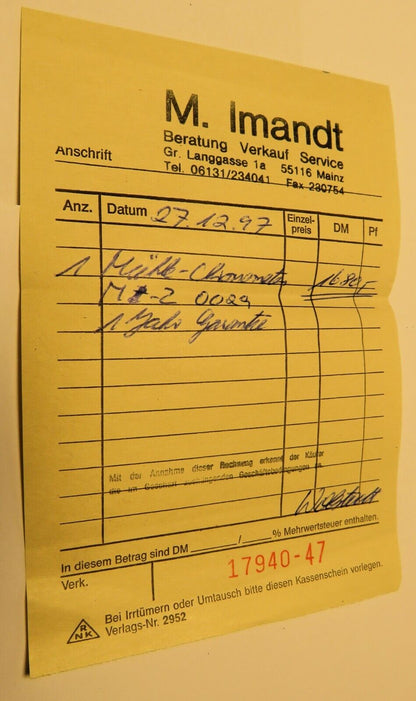 M. Imandt
Beratung Verkauf Service
Gr. Langgasse 1a 55116 Mainz
Tel. 06131/234041 Fax 230754
Anschrift
Anz. Datum 27.12.97 Einzel-preis DM Pf
1 Mühle-Chronometer 1680,-
M 2 0029
1 Jahr Garantie
Mit der Annahme dieser Rechnung erkennt der Käufer
die im Geschäft aushängenden Geschäftsbedingungen an.
In diesem Betrag sind DM ____ / ____ % Mehrwertsteuer enthalten.
Verk. 17940-47
Bei Irrtümern oder Umtausch bitte diesen Kassenschein vorlegen.
RNK Verlags-Nr. 2952